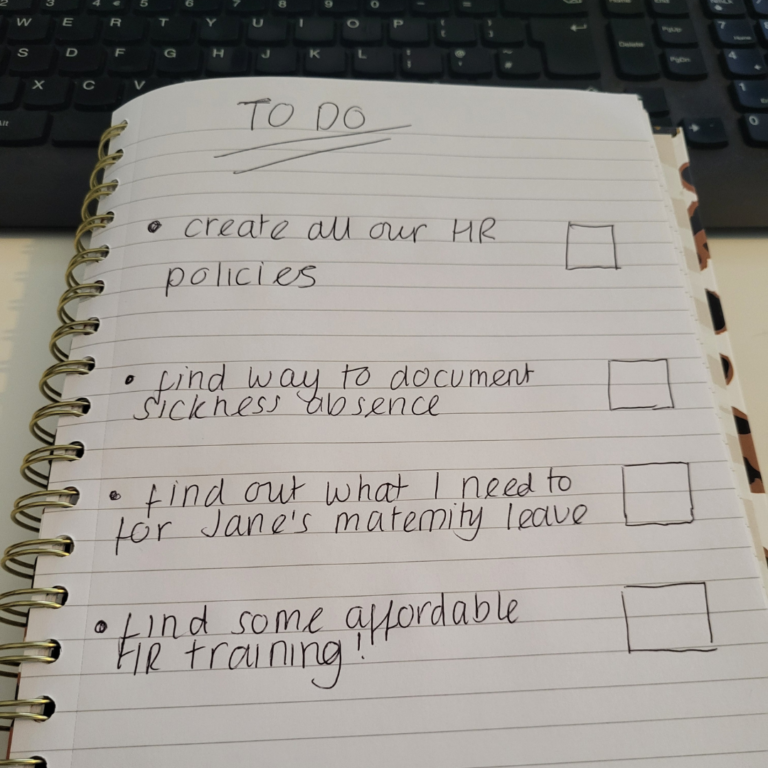 W E R T Y U I O P
S D F G H J K L
Delete
PgDn
X C V
TO DO
• create all our HR
policies
• find way to document
sickness absence
• find out what I need to
for Jane's maternity leave
• find some affordable
HR training!